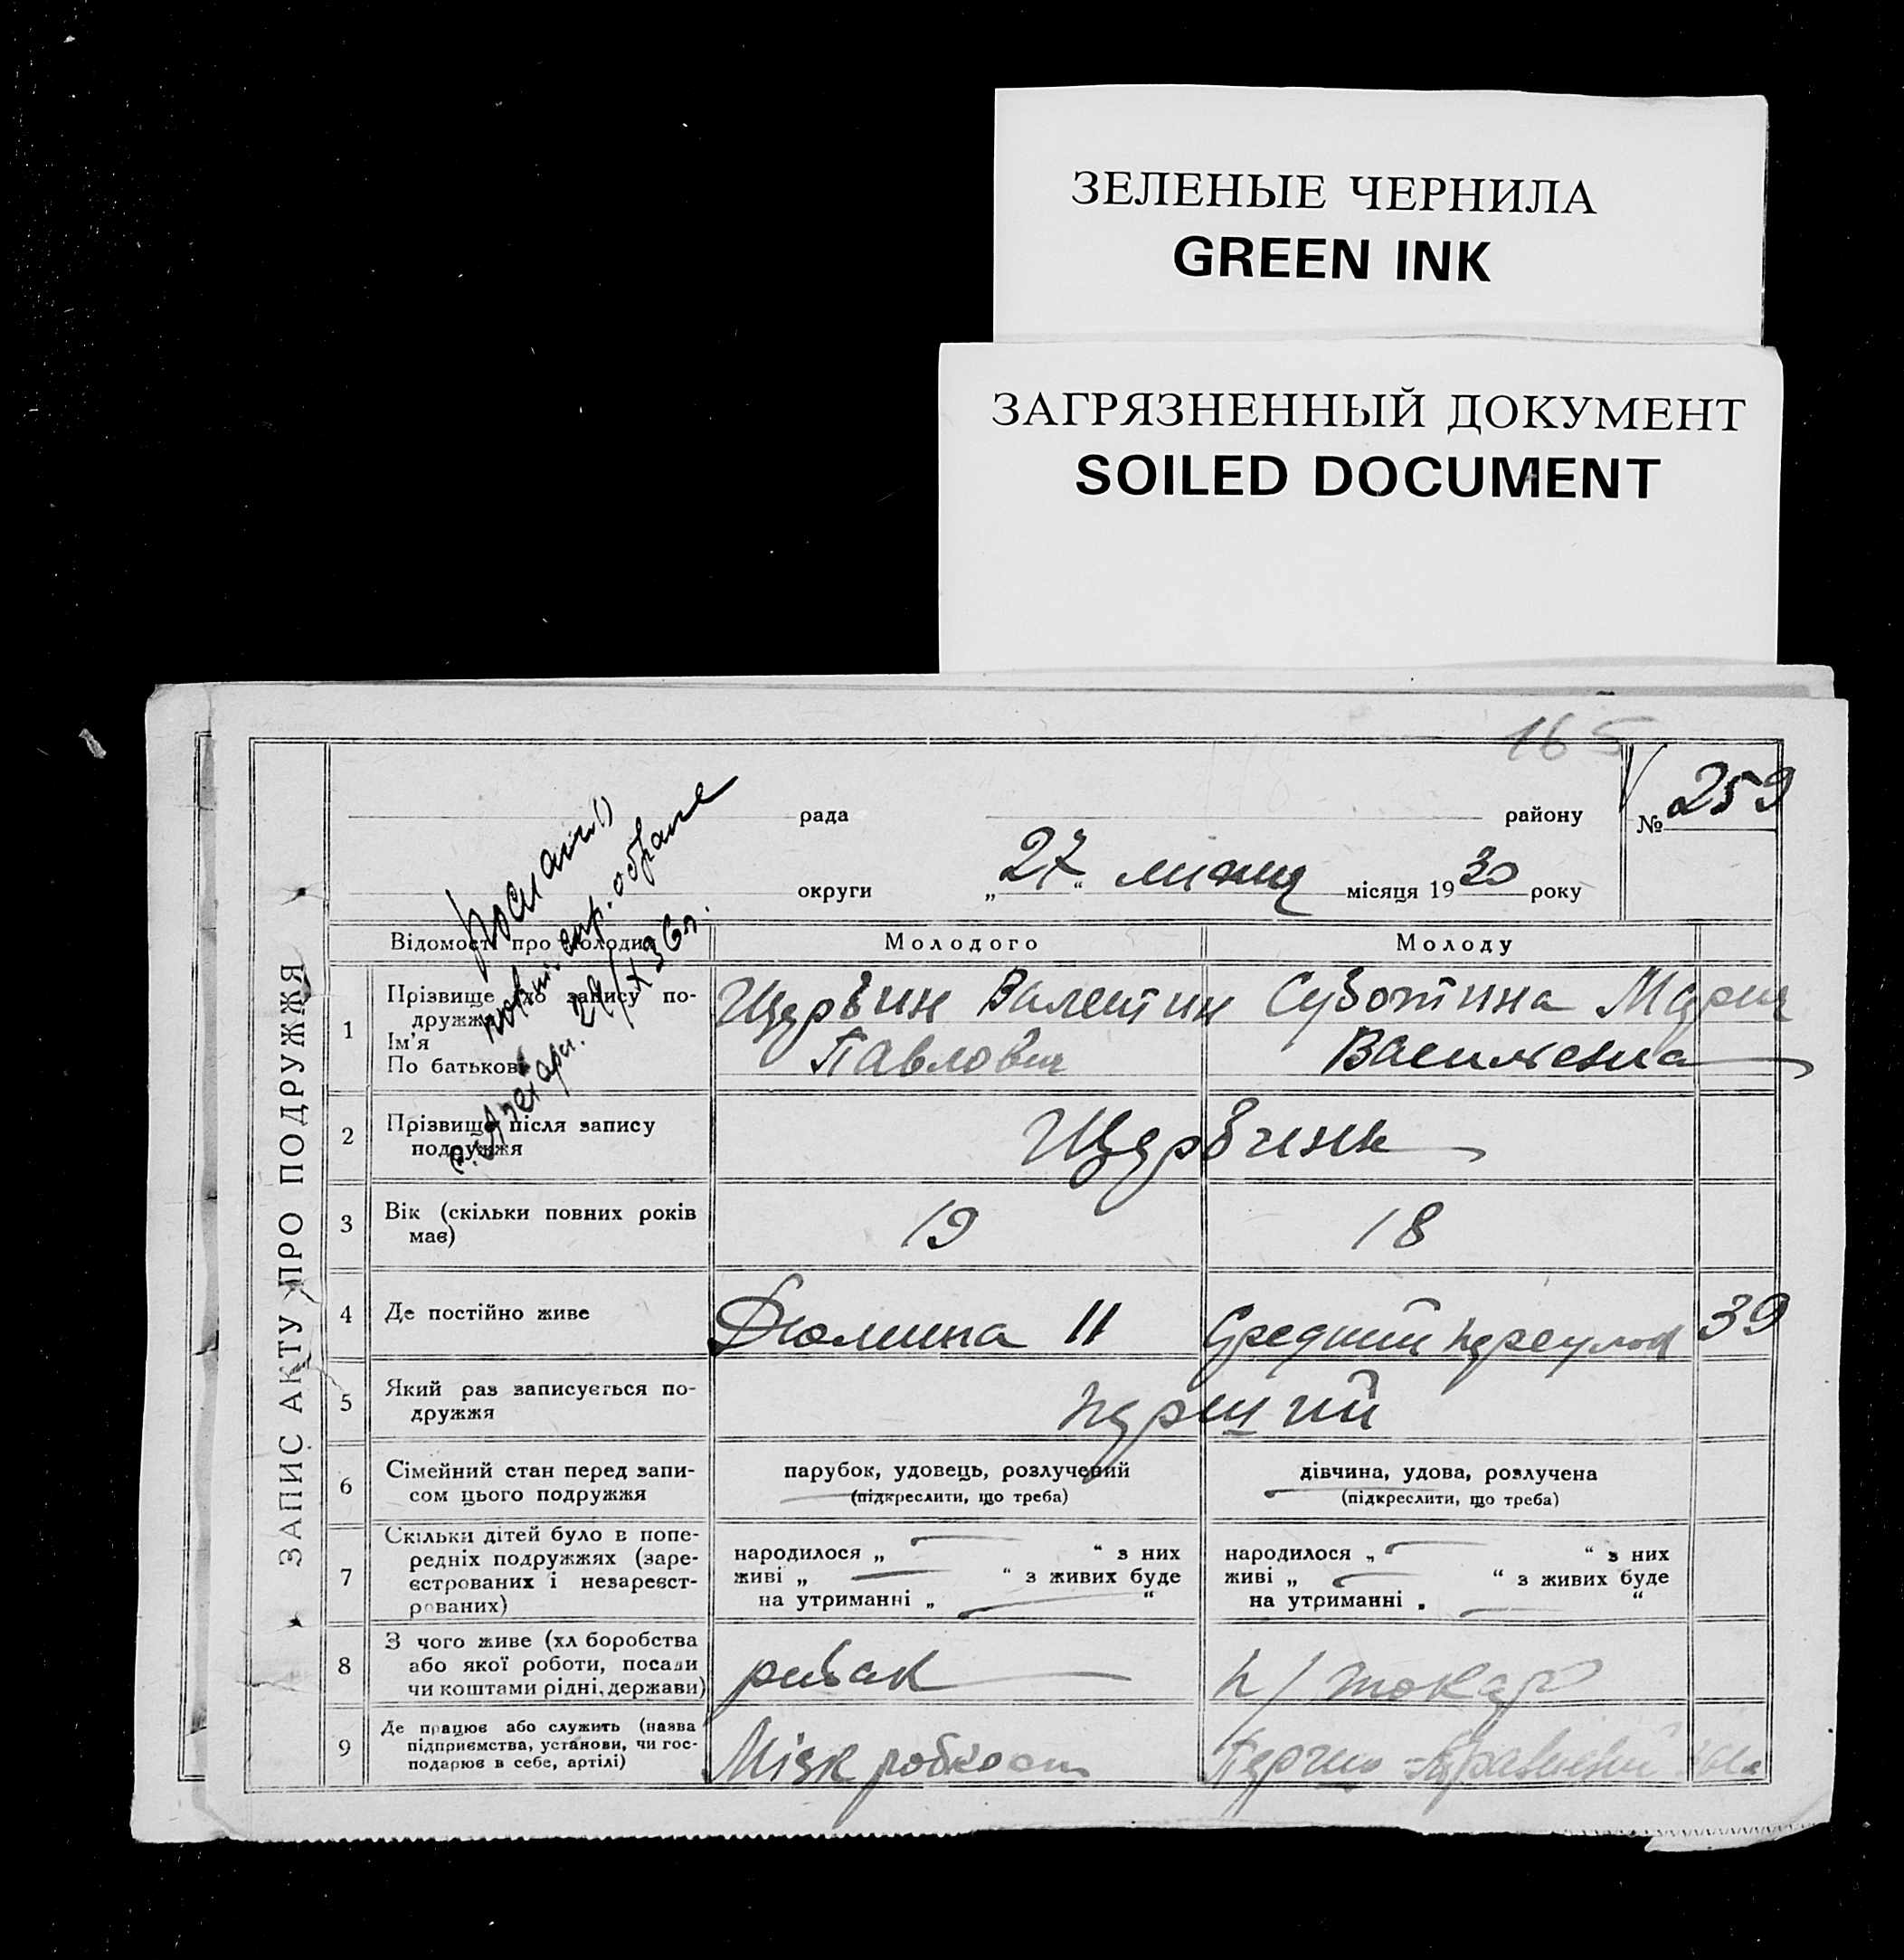 ЗЕЛЕНЫЕ ЧЕРНИЛА
GREEN INK
ЗАГРЯЗНЕННЫЙ ДОКУМЕНТ
SOILED DOCUMENT
165
рада района
№ 259
округи „27“ місяця 1930 року
ЗАПИС АКТУ ПРО ПОДРУЖЖЯ
Відомості про молодих Молодого Молоду
1 Прізвище до запису по-
дружжя
Ім'я
По батькові
Щербин Валентин
Павлович
Суботина Мария
Васильевна
2 Прізвище після запису
подружжя
3 Вік (скільки повних років
має)
19 18
4 Де постійно живе
Дюлина 11 Средний переулок 39
5 Який раз записується по-
дружжя
перший
6 Сімейний стан перед запи-
сом цього подружжя
парубок, удовець, розлучений
(підкреслити, що треба)
дівчина, удова, розлучена
(підкреслити, що треба)
7 Скільки дітей було в попе-
редніх подружжях (заре-
єстрованих і незареєст-
рованих)
народилося „ “ з них
живі „ “ з живих буде
на утриманні „ “
народилося „ “ з них
живі „ “ з живих буде
на утриманні „ “
8 З чого живе (хл боробства
або якої роботи, посади
чи коштами рідні, держави)
рибак токар
9 Де працює або служить (назва
підприємства, установи, чи гос-
подарює в себе, артілі)